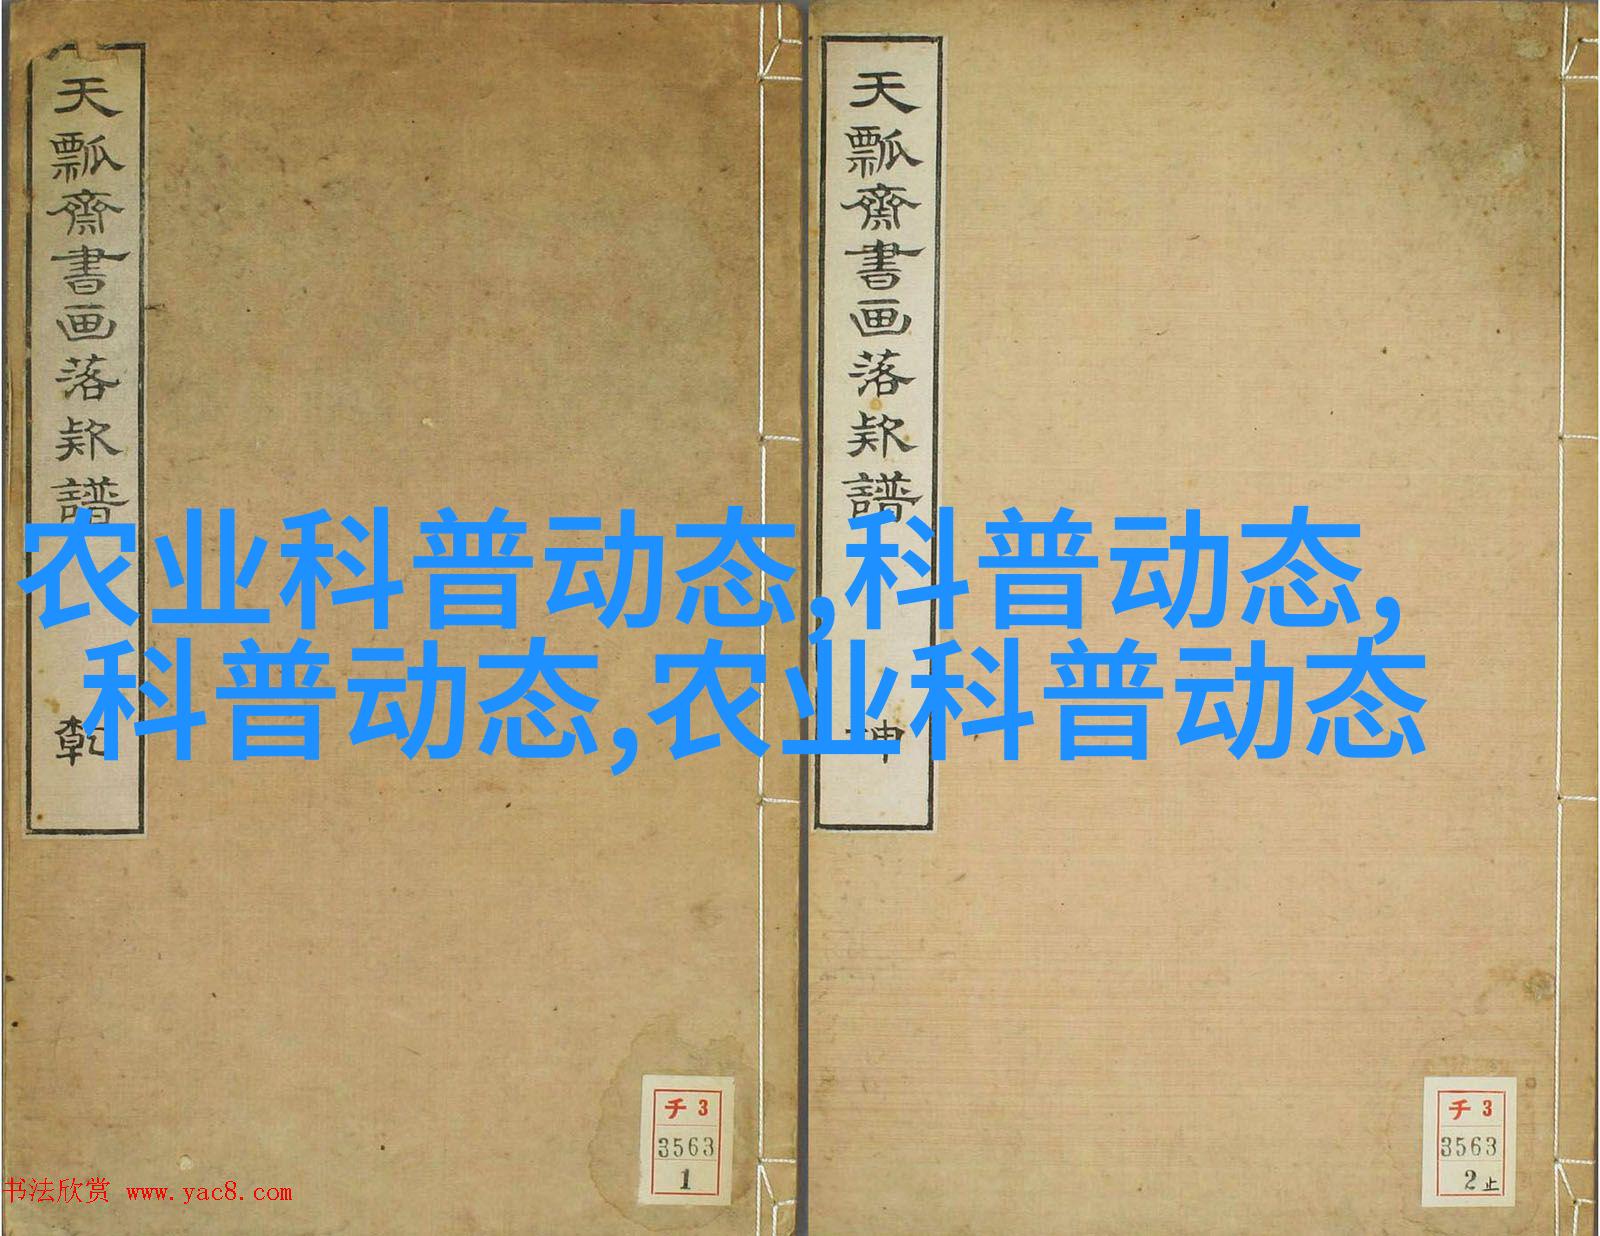 天瓢齋書画落欵譜
乾
天瓢齋書画落欵譜
坤
农业科普动态,科普动态,
科普动态,农业科普动态
チ 3
3563
1
チ 3
3563
2止
书法欣赏 www.yac8.com